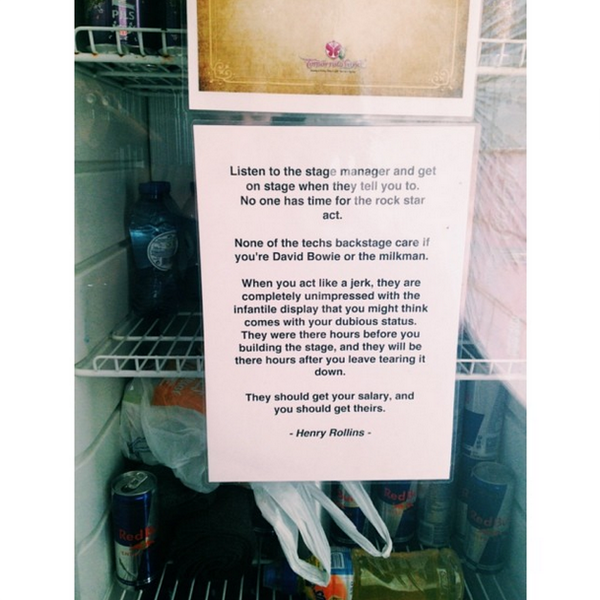 PILS
Tomorrowland
Listen to the stage manager and get
on stage when they tell you to.
No one has time for the rock star
act.
None of the techs backstage care if
you're David Bowie or the milkman.
When you act like a jerk, they are
completely unimpressed with the
infantile display that you might think
comes with your dubious status.
They were there hours before you
building the stage, and they will be
there hours after you leave tearing it
down.
They should get your salary, and
you should get theirs.
- Henry Rollins -
Red
Red
Red